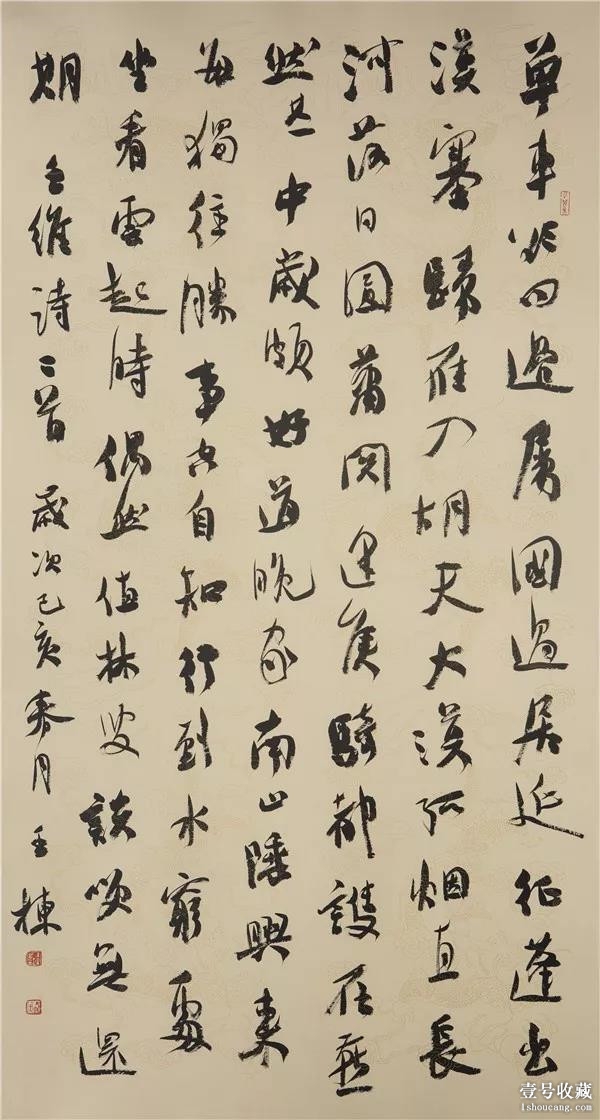 單車欲問邊屬國過居延征蓬出
漢塞歸雁入胡天大漠孤烟直長
河落日圓蕭関逢候騎都護在燕
然 中歲頗好道晚家南山陲興來
每獨往勝事空自知行到水窮處
坐看雲起時偶然值林叟談笑無還
期 王維詩二首 歲次己亥春月 王棟
壹号收藏
1shoucang.com